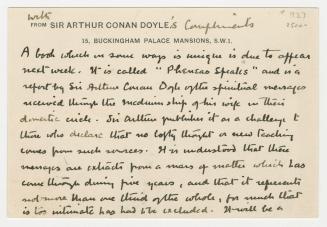 with
FROM SIR ARTHUR CONAN DOYLE's Compliments
1927
15, BUCKINGHAM PALACE MANSIONS, S.W.1.
A book which in some ways is unique is due to appear
next week. It is called "Pheneas Speaks" and is a
report by Sir Arthur Conan Doyle of the spiritual messages
received through the mediumship of his wife in their
domestic circle. Sir Arthur publishes it as a challenge to
those who declare that no lofty thought or new teaching
comes from such sources. It is understood that these
messages are extracts from a mass of matter which has
come through during five years, and that it represents
not more than one third of the whole, for much that
is too intimate has had to be excluded. It will be a